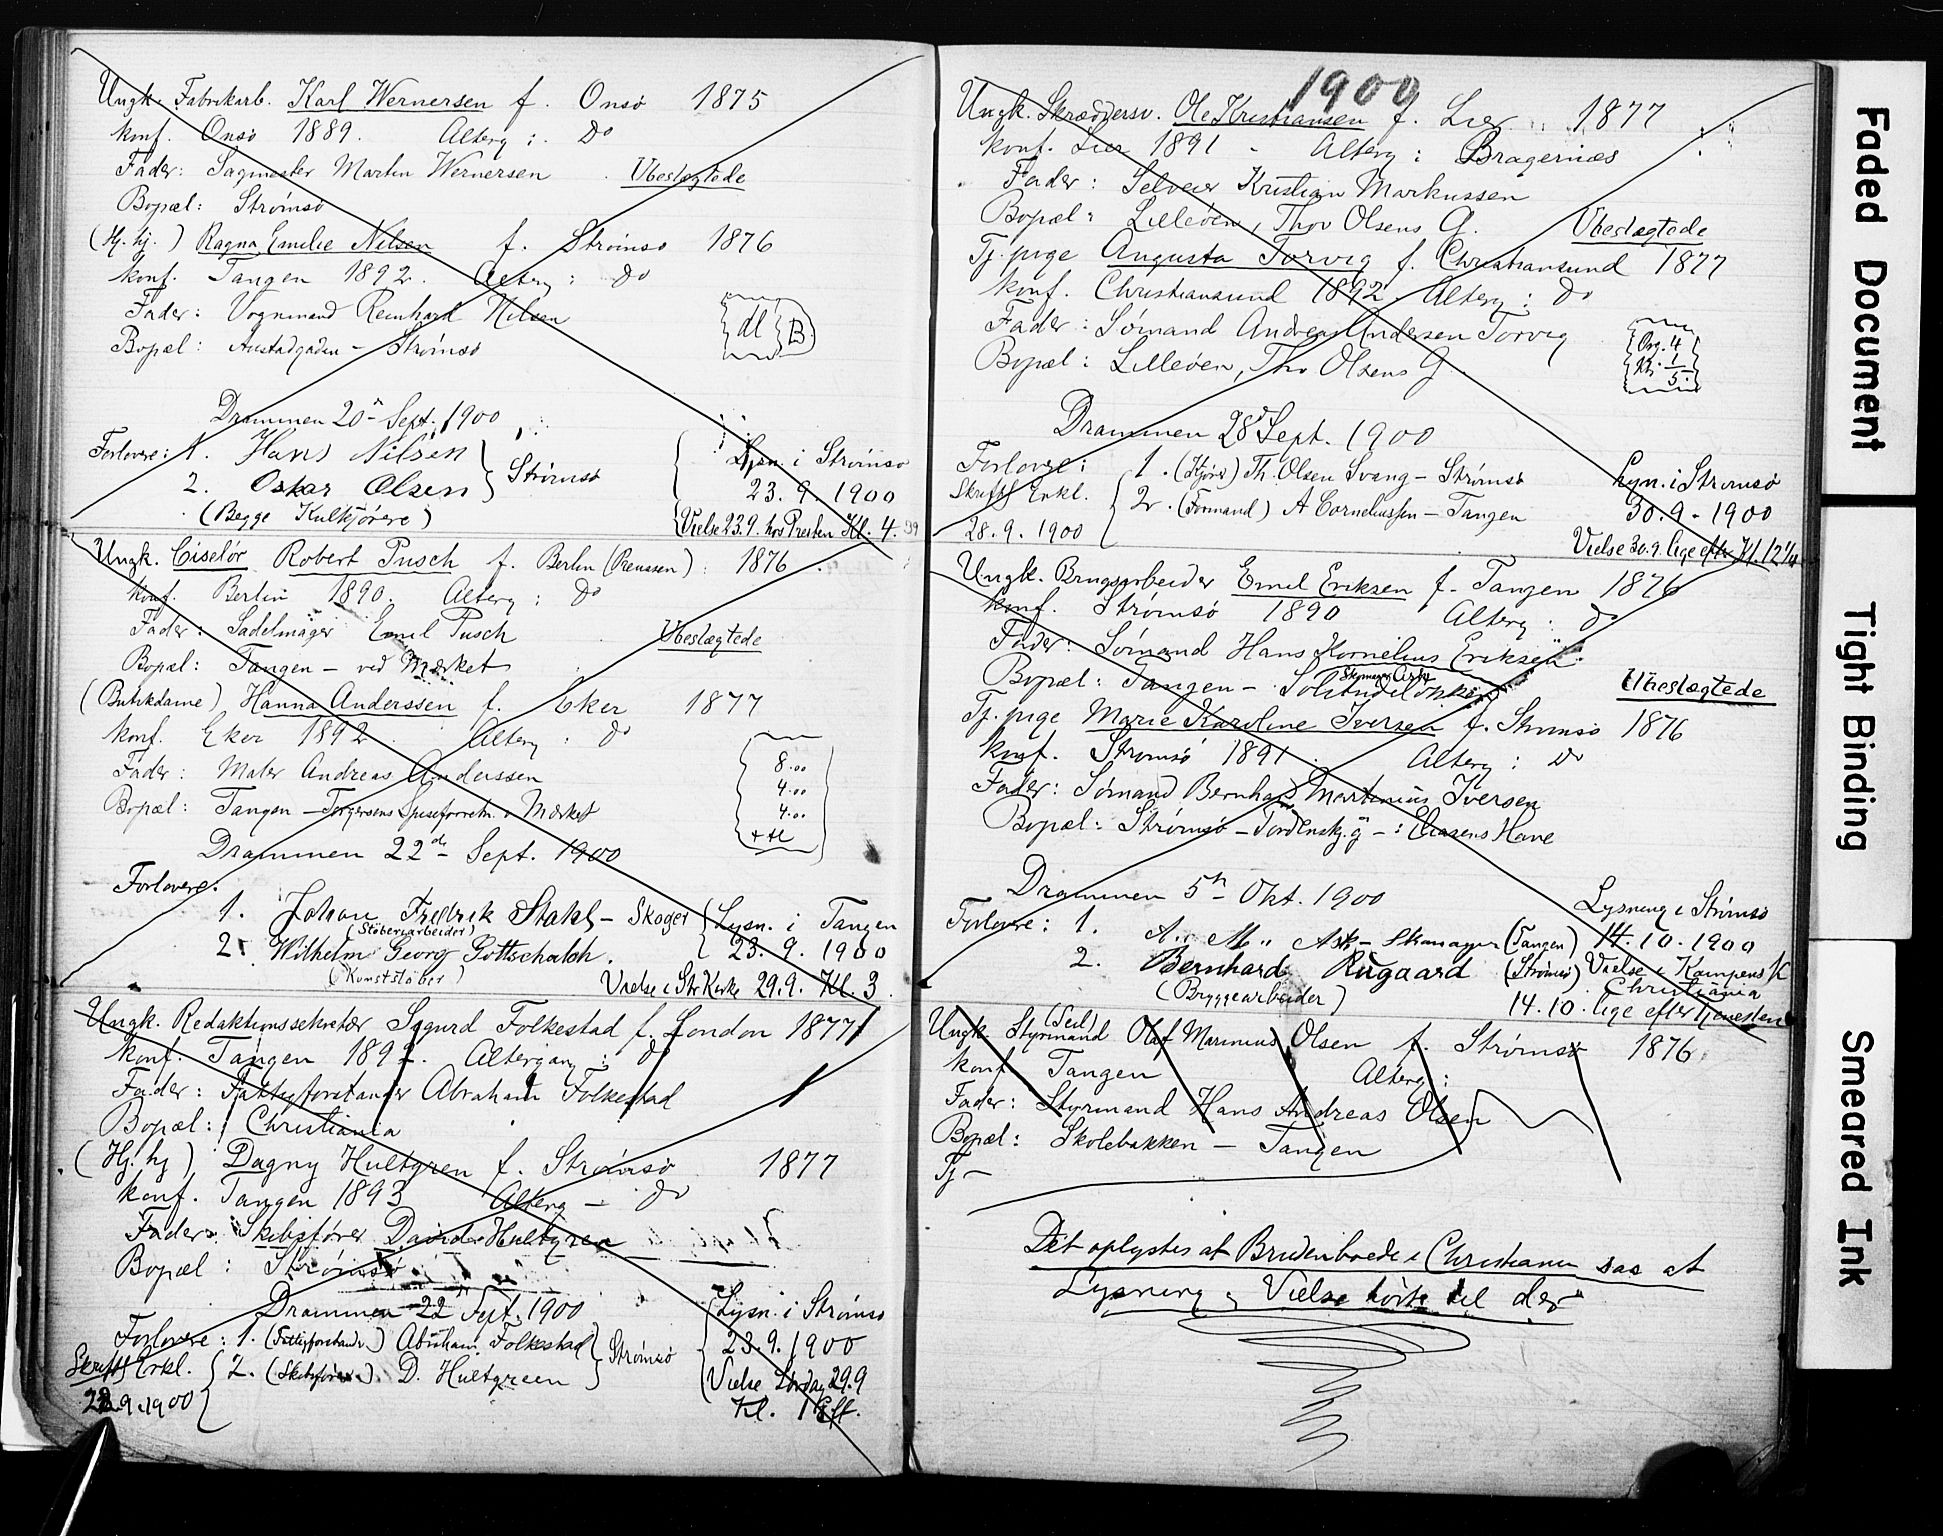 Ungk. Fabrikarb. Karl Wernersen f. Onsø 1875
konf. Onsø 1889. Alterg: do
Fader: Sagmester Martin Wernersen Ubeslægtede
Bopæl: Strømsø
(Hj. hj.) Ragna Emilie Nilsen f. Strømsø 1876
konf. Tangen 1892. Alterg: do
Fader: Vognmand Reinhard Nilsen
dl B
Bopæl: Austadgaden - Strømsø
Drammen 20 Sept. 1900
Forlovere: 1. Hans Nilsen
2. Oskar Olsen
Strømsø
(Begge Kulkjørere)
Lysn. i Strømsø
23.9.1900
Vielse 23.9. hos Presten Kl. 4.
Ungk. Ciselør Robert Pusch f. Berlin (Preussen) 1876
konf. Berlin 1890. Alterg: do
Fader: Sadelmager Emil Pusch Ubeslægtede
Bopæl: Tangen - ved Mærket
(Butikdame) Hanna Anderssen f. Eker 1877
konf. Eker 1892 Alterg: do
Fader: Maler Andreas Anderssen
Bopæl: Tangen - Torgersens Spiseforretn. v Mærket
8.00
4.00
4.00
Drammen 22de Sept. 1900
Forlovere.
1. Johan Fredrik Stahl - Skoger
(Støberiarbeider)
2. Wilhelm Georg Gottschalch.
(Kunststøber)
Lysn. i Tangen
23.9.1900
Vielse i Str Kirke 29.9. Kl. 3
Ungk. Redaktionssekretær Sigurd Folkestad f. London 1877
konf. Tangen 1892. Altergang: do
Fader: Fattigforstander Abraham Folkestad
Bopæl: Christiania
(Hj. hj) Dagny Hultgren f. Strømsø 1877
konf. Tangen 1893 Alterg - do
Fader: Skibsfører David Hultgren
Bopæl: Strømsø
Drammen 22 Sept. 1900
Forlovere: 1. (Fattigforstander) Abraham Folkestad
Skriftl Erkl. 2. (Skibsfører) D. Hultgreen
Strømsø
22.9.1900
Lysn. i Strømsø
23.9.1900
Vielse Lørdag 29.9
Kl. 1 Eft.
1900
Ungk. Skræddersv. Ole Kristiansen f. Lier 1877
konf. Lier 1891 - Alterg: Bragernæs
Fader: Selveier Kristian Markussen
Bopæl: Lilleøen, Thor Olsens G. Ubeslægtede
Tj. pige Augusta Torvig f. Christiansund 1877
konf. Christiansund 1892. Alterg: do
Fader: Sømand Andreas Andersen Torvig
Org. 4
Kl. 1
5.
Bopæl: Lilleøen, Thor Olsens G.
Drammen 28 Sept. 1900
Forlovere: 1. (Kjører) Th. Olsen Svang - Strømsø
Skriftl Erkl. 2. (Formand) A Corneliussen - Tangen
28.9.1900
Lyn. i Strømsø
30.9.1900
Vielse 30.9. lige efter Kl. 12 1/4
Ungk. Brugsarbeider Emil Eriksen f. Tangen 1876
konf. Strømsø 1890 Alterg: do
Fader: Sømand Hans Kornelius Eriksen
Bopæl: Tangen - Solitudeløkken Ubeslægtede
Tj. pige Marie Karoline Iversen f. Strømsø 1876
konf. Strømsø 1891. Alterg: do
Fader: Sømand Bernhard Martinius Iversen
Bopæl: Strømsø - Tordenskj. g - : Eliasens Have
Drammen 5te Okt. 1900
Forlovere: 1. A. M. Ask - Skomager (Tangen)
2. Bernhard Rugaard (Strømsø)
(Bryggearbeider)
Lysning i Strømsø
14.10.1900
Vielse i Kampens K
Christiania
14.10. lige efter Tjenesten
Ungk. (Seil) Styrmand Olaf Marinius Olsen f. Strømsø 1876
konf Tangen Alterg:
Fader: Styrmand Hans Andreas Olsen
Bopæl: Skolebakken - Tangen
Tj -
Det oplystes at Bruden boede i Christiania saa at
Lysning og Vielse hørte til der
Faded Document
Tight Binding
Smeared Ink